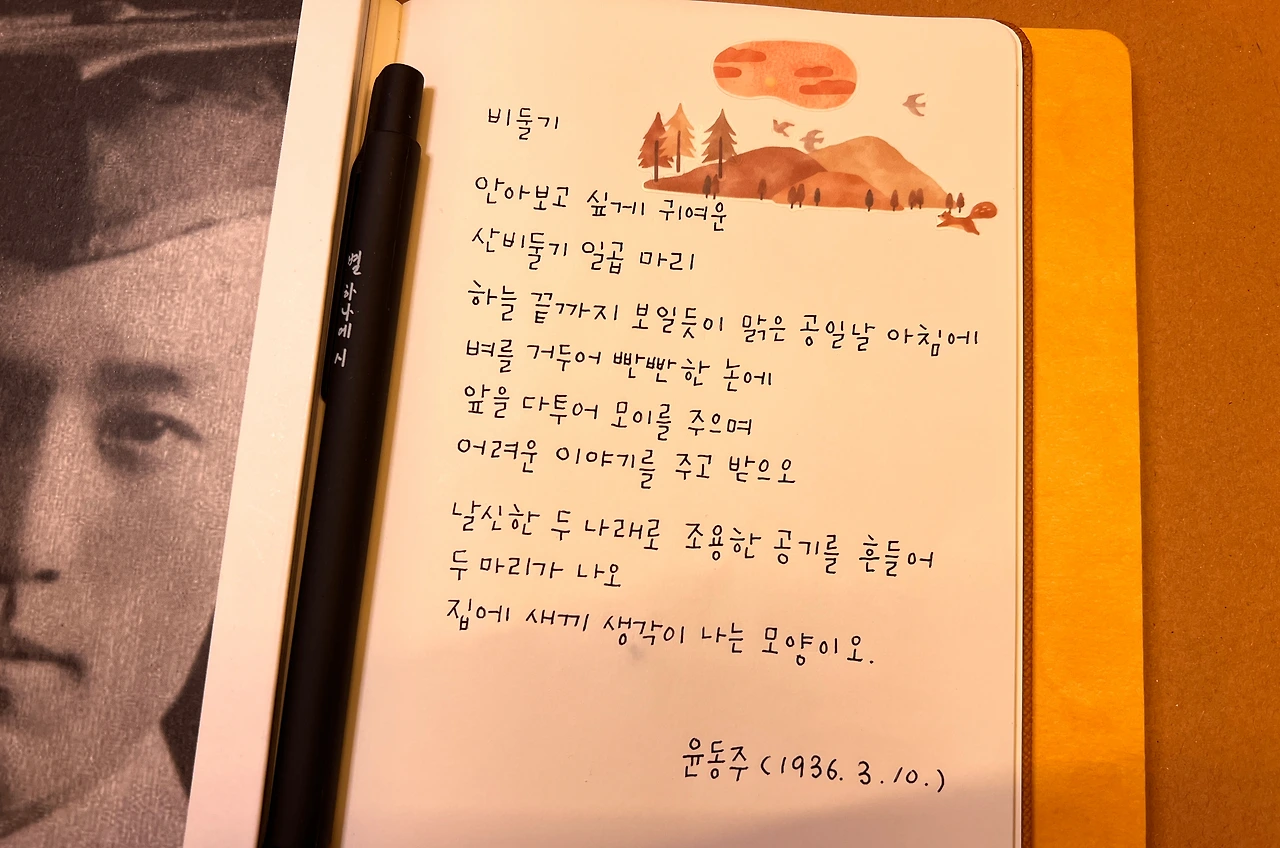 비둘기
안아보고 싶게 귀여운
산비둘기 일곱 마리
하늘 끝까지 보일듯이 맑은 공일날 아침에
벼를 거두어 빤빤한 논에
앞을 다투어 모이를 주으며
어려운 이야기를 주고 받으오
날신한 두 나래로 조용한 공기를 흔들어
두 마리가 나오
집에 새끼 생각이 나는 모양이오.
윤동주 (1936. 3. 10.)
별 하나에 시